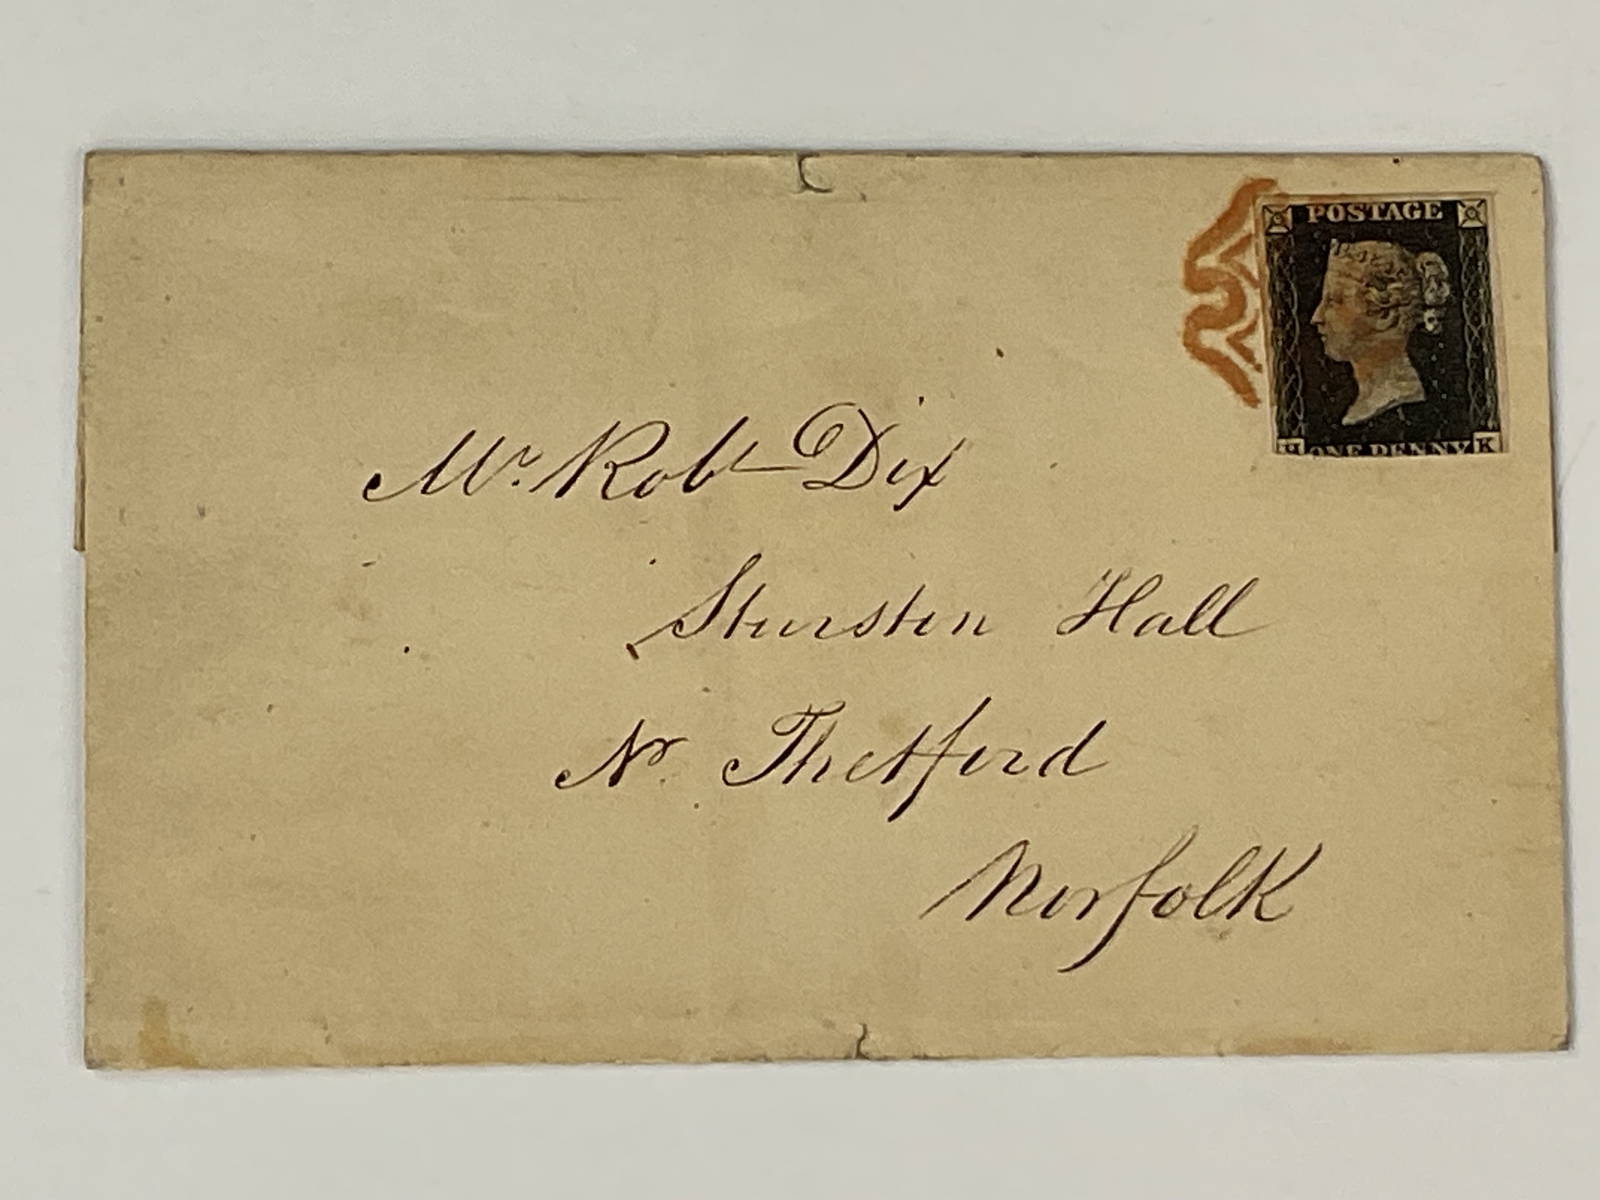 POSTAGE
H ONE PENNY K
Mr. Robt Dix
Sturston Hall
Nr. Thetford
Norfolk